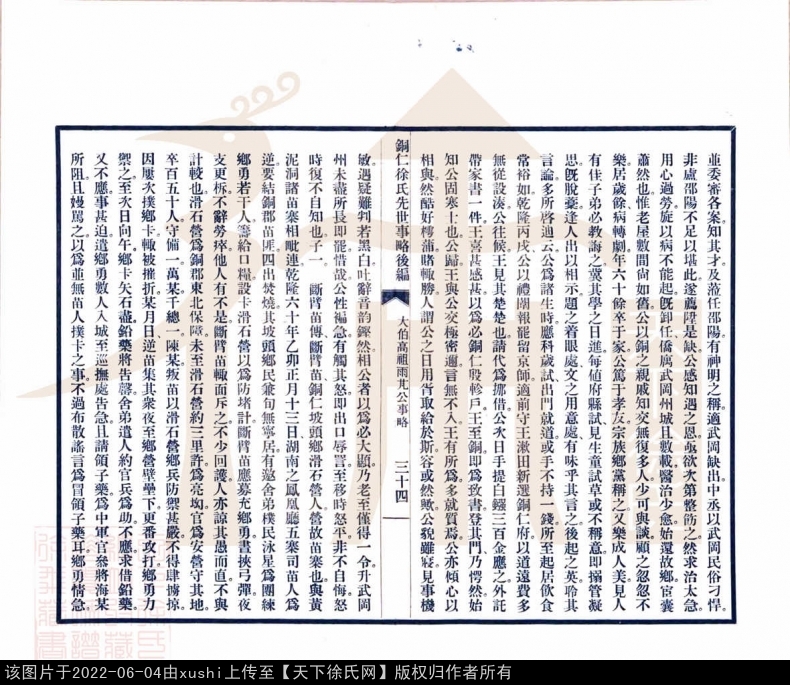 並委審各案知其才及蒞任邵陽有神明之稱適武岡缺出中丞以武岡民俗刁悍
非盧邵陽不足以堪此遂薦陞是缺公感知遇之恩亟欲次第整飭之然求治太急
用心過勞旋以病不能起既卸任僑寓武岡州城且數載醫治少愈始還故鄉宦囊
蕭然也惟老屋數間尚如舊公以銅之親戚知交無復多人少可與談顧之忽忽不
樂居歲餘病轉劇年六十餘卒于家公篤于孝友宗族鄉黨稱之又樂成人美見人
有佳子弟必教誨之冀其學之日進每値府縣試見生童試草或不稱意即搦管凝
思旣脫稾逢人出以相示題之着眼處文之用意處有味乎其言之後起之英聆其
言論多所啓迪云公爲諸生時應科歲試出門就道或手不持一錢所至起居飲食
常裕如乾隆丙戌公以禮闈報罷留京師適前守王漱田新選銅仁府以道遠費多
無從設湊公往候王見其楚楚也請代爲挪借公次日手提白鏹三百金應之外託
帶家書一件王喜甚感甚以爲必銅仁殷軫戶王至銅即爲致書登其門乃愕然始
知公固寒士也公歸王與公交極密邇言無不入王有所爲多就質焉公亦傾心以
相與然酷好樗蒲賭輒勝人謂公之日用胥取給於斯容或然歟公貌雖寢見事機
銅仁徐氏先世事略後編
大伯高祖雨芃公事略
三十四
敏遇疑難判若黑白吐辭音韵鏗然相公者以爲必大顯乃老至僅得一令升武岡
州未盡所長即罷惜哉公性褊急有觸其怒即出口辱詈至移時怒平非不自悔怒
時復不自知也子一 斷臂苗傳斷臂苗銅仁坡頭鄉滑石營人營故苗寨也與黃
泥洞諸苗寨相毗連乾隆六十年乙卯正月十三日湖南之鳳凰廳五寨司苗人爲
逆要結銅郡苗匪四出焚燒其坡頭鄉民兼旬無寧居有邀舍弟樸民泳星爲團練
鄉勇若干人籌給口糧設卡滑石營以爲防堵計斷臂苗應募充鄉勇晝挾弓彈夜
支更柝不辭勞瘁他人有不是斷臂苗輒面斥之不少回護人亦諒其愚而直不與
計較也滑石營爲銅郡東北保障未至滑石營約三里許爲亮㘭官爲安營守其地
卒百五十人守備一萬某千總一陳某叛苗以滑石營鄉兵防禦甚嚴不得肆擄掠
因屢次撲鄉卡輒被摧折某月日逆苗集其衆夜至鄉營壁壘下更番攻打鄉勇力
禦之至次日向午鄉卡矢石盡鉛藥將告罄舍弟遣人約官兵爲助不應求借鉛藥
又不應事甚迫遣鄉勇數人入城至巡撫處告急且請領子藥爲中軍官叅將海某
所阻且嫚罵之以爲並無苗人撲卡之事不過布散謠言爲冒領子藥耳鄉勇情急
该图片于2022-06-04由xushi上传至【天下徐氏网】版权归作者所有